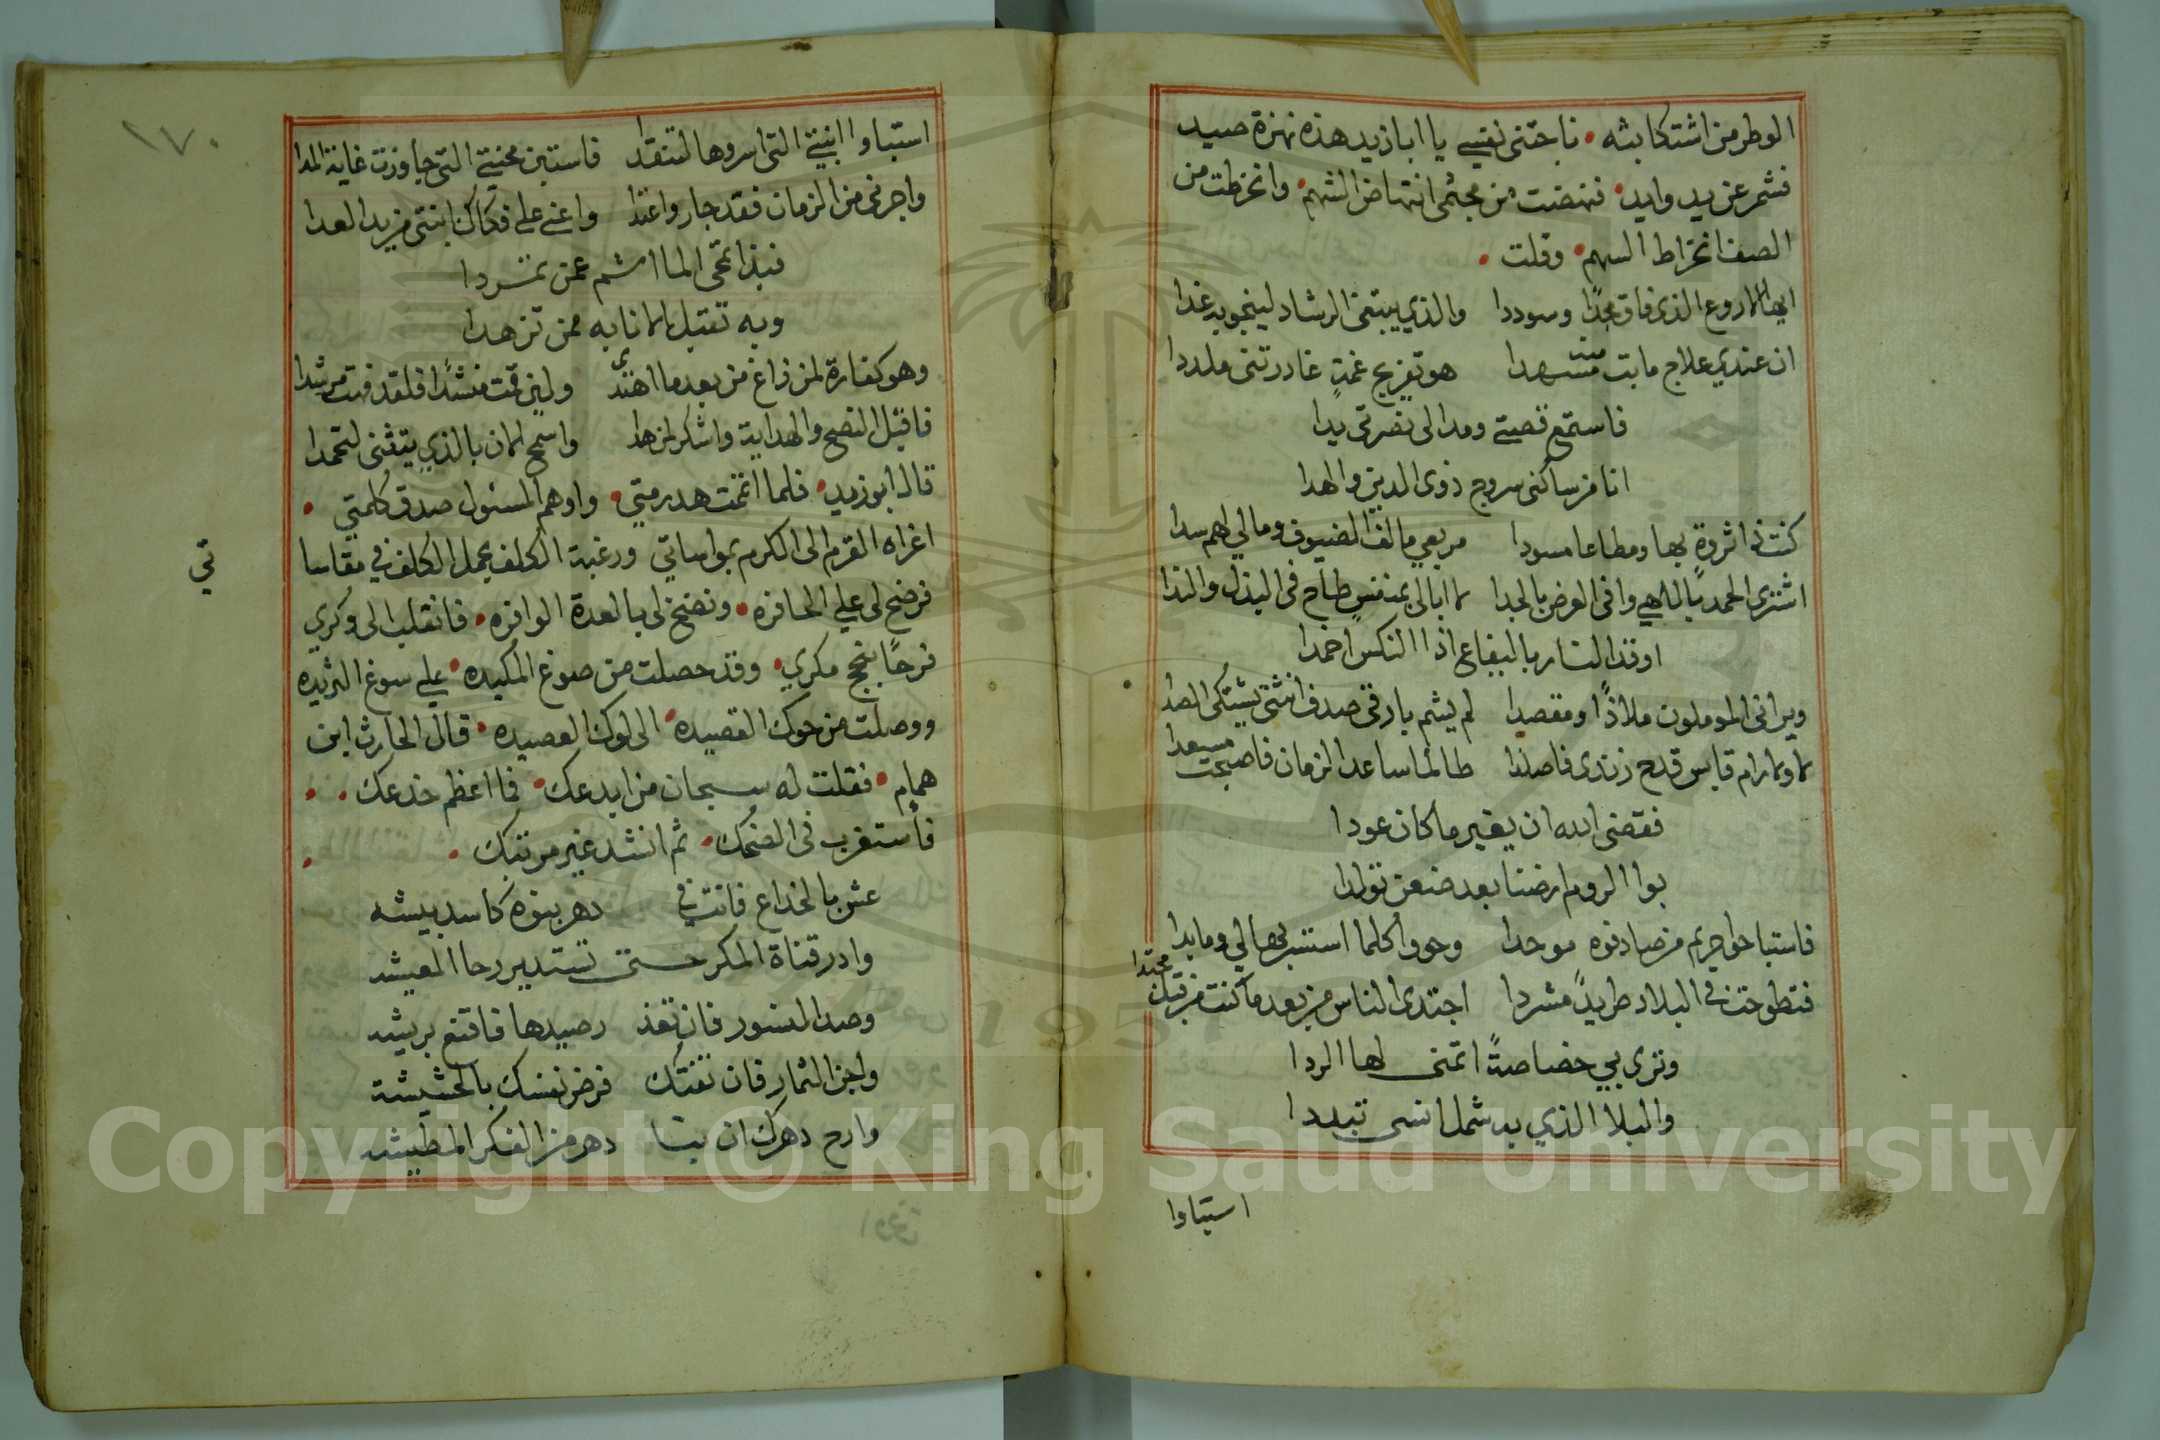 الوطر من اشتكا بثه • ناجتنى نفسي يا ابا زيد هذه نهزة صيد
فشمر عن يد وايد • فنهضت من مجثمى انتهاض الشهم • وانخرطت من
الصف انخراط السهم • وقلت •
ايها الاروع الذى فاق مجدًا وسوددا والذي يبتغى الرشاد لينجو به غدا
ان عندي علاج ما بت منه مسهدا هو تفريج غمةٍ غادرتنى ملددا
فاستمع قصتي ومد الى نصرتى يدا
انا من ساكنى سروج ذوى الدين والهدا
كنت ذا ثروةٍ بها ومطاعا مسودا مربعي مالف الضيوف ومالي لهم سدا
اشترى الحمد باللهي واقى العرض بالجدا لا ابالى بمنفسٍ طاح فى البذل والندا
اوقد النار باليفاع اذا النكس اخمدا
ويرانى المومولون ملاذًا ومقصدا لم يشم بارقى صدف انثنى يشتكى الصدا
لا ولا رام قابس قدح زندى فاصلدا طالما ساعد الزمان فاصبحت مسعدا
فقضى الله ان يغير ما كان عودا
بوا الروم ارضنا بعد ضغن تولدا
فاستباحوا حريم من صادفوه موحدا وحووا كلما استسر بها لي وما بدا
فتطوحت في البلاد طريدًا مشردا اجتدى الناس من بعد ما كنت من قبل مجتدا
وترى بي خصاصةً اتمنى لها الردا
والبلا الذي به شمل انسى تبددا
استباوا
١٧٠
استباوا ابنتي التى اسروها لتفتدا فاستبن محنتي التى جاوزت غاية المدا
واجرنى من الزمان فقد جار واعتدا واعني علي فكاك ابنتى من يد العدا
فبذا تمحى الماثم عمن تمردا
وبه تقبل الانابه ممن تزهدا
وهو كفارة لمن زاغ من بعد ما اهتدى ولين قمت منشدًا فلقد فهت مرشدا
فاقبل النصح والهداية واشكر لمن هدا واسمح الان بالذي يتسنى لتحمدا
قال ابو زيد • فلما اتممت هدرمتي • واوهم المسئول صدق كلمتي •
اغراه القرم الى الكرم بمواساتي ورغبة الكلف بحمل الكلف في مقاسا
تي
فرضخ لى علي الحافزه • ونضخ لى بالعدة الوافره • فانقلبت الى وكري
فرحًا بنجح مكري • وقد حصلت من صوغ المكيده • علي سوغ الثريده
ووصلت من حوك القصيده • الى لوك العصيده • قال الحارث ابن
همام • فقلت له سبحان من ابدعك • فما اعظم خدعك •
فاستغرب فى الضحك • ثم انشد غير مرتبك •
عش بالخداع فانت في دهر بنوه كاسد بيشه
وادر قناة المكر حتى تستدير رحا المعيشه
وصد النسور فان تعذ ر صيدها فاقنع بريشه
واجن الثمار فان تفتك فرض نفسك بالحشيشة
وارح دهرك ان نبا دهر من الفكر المطيشه